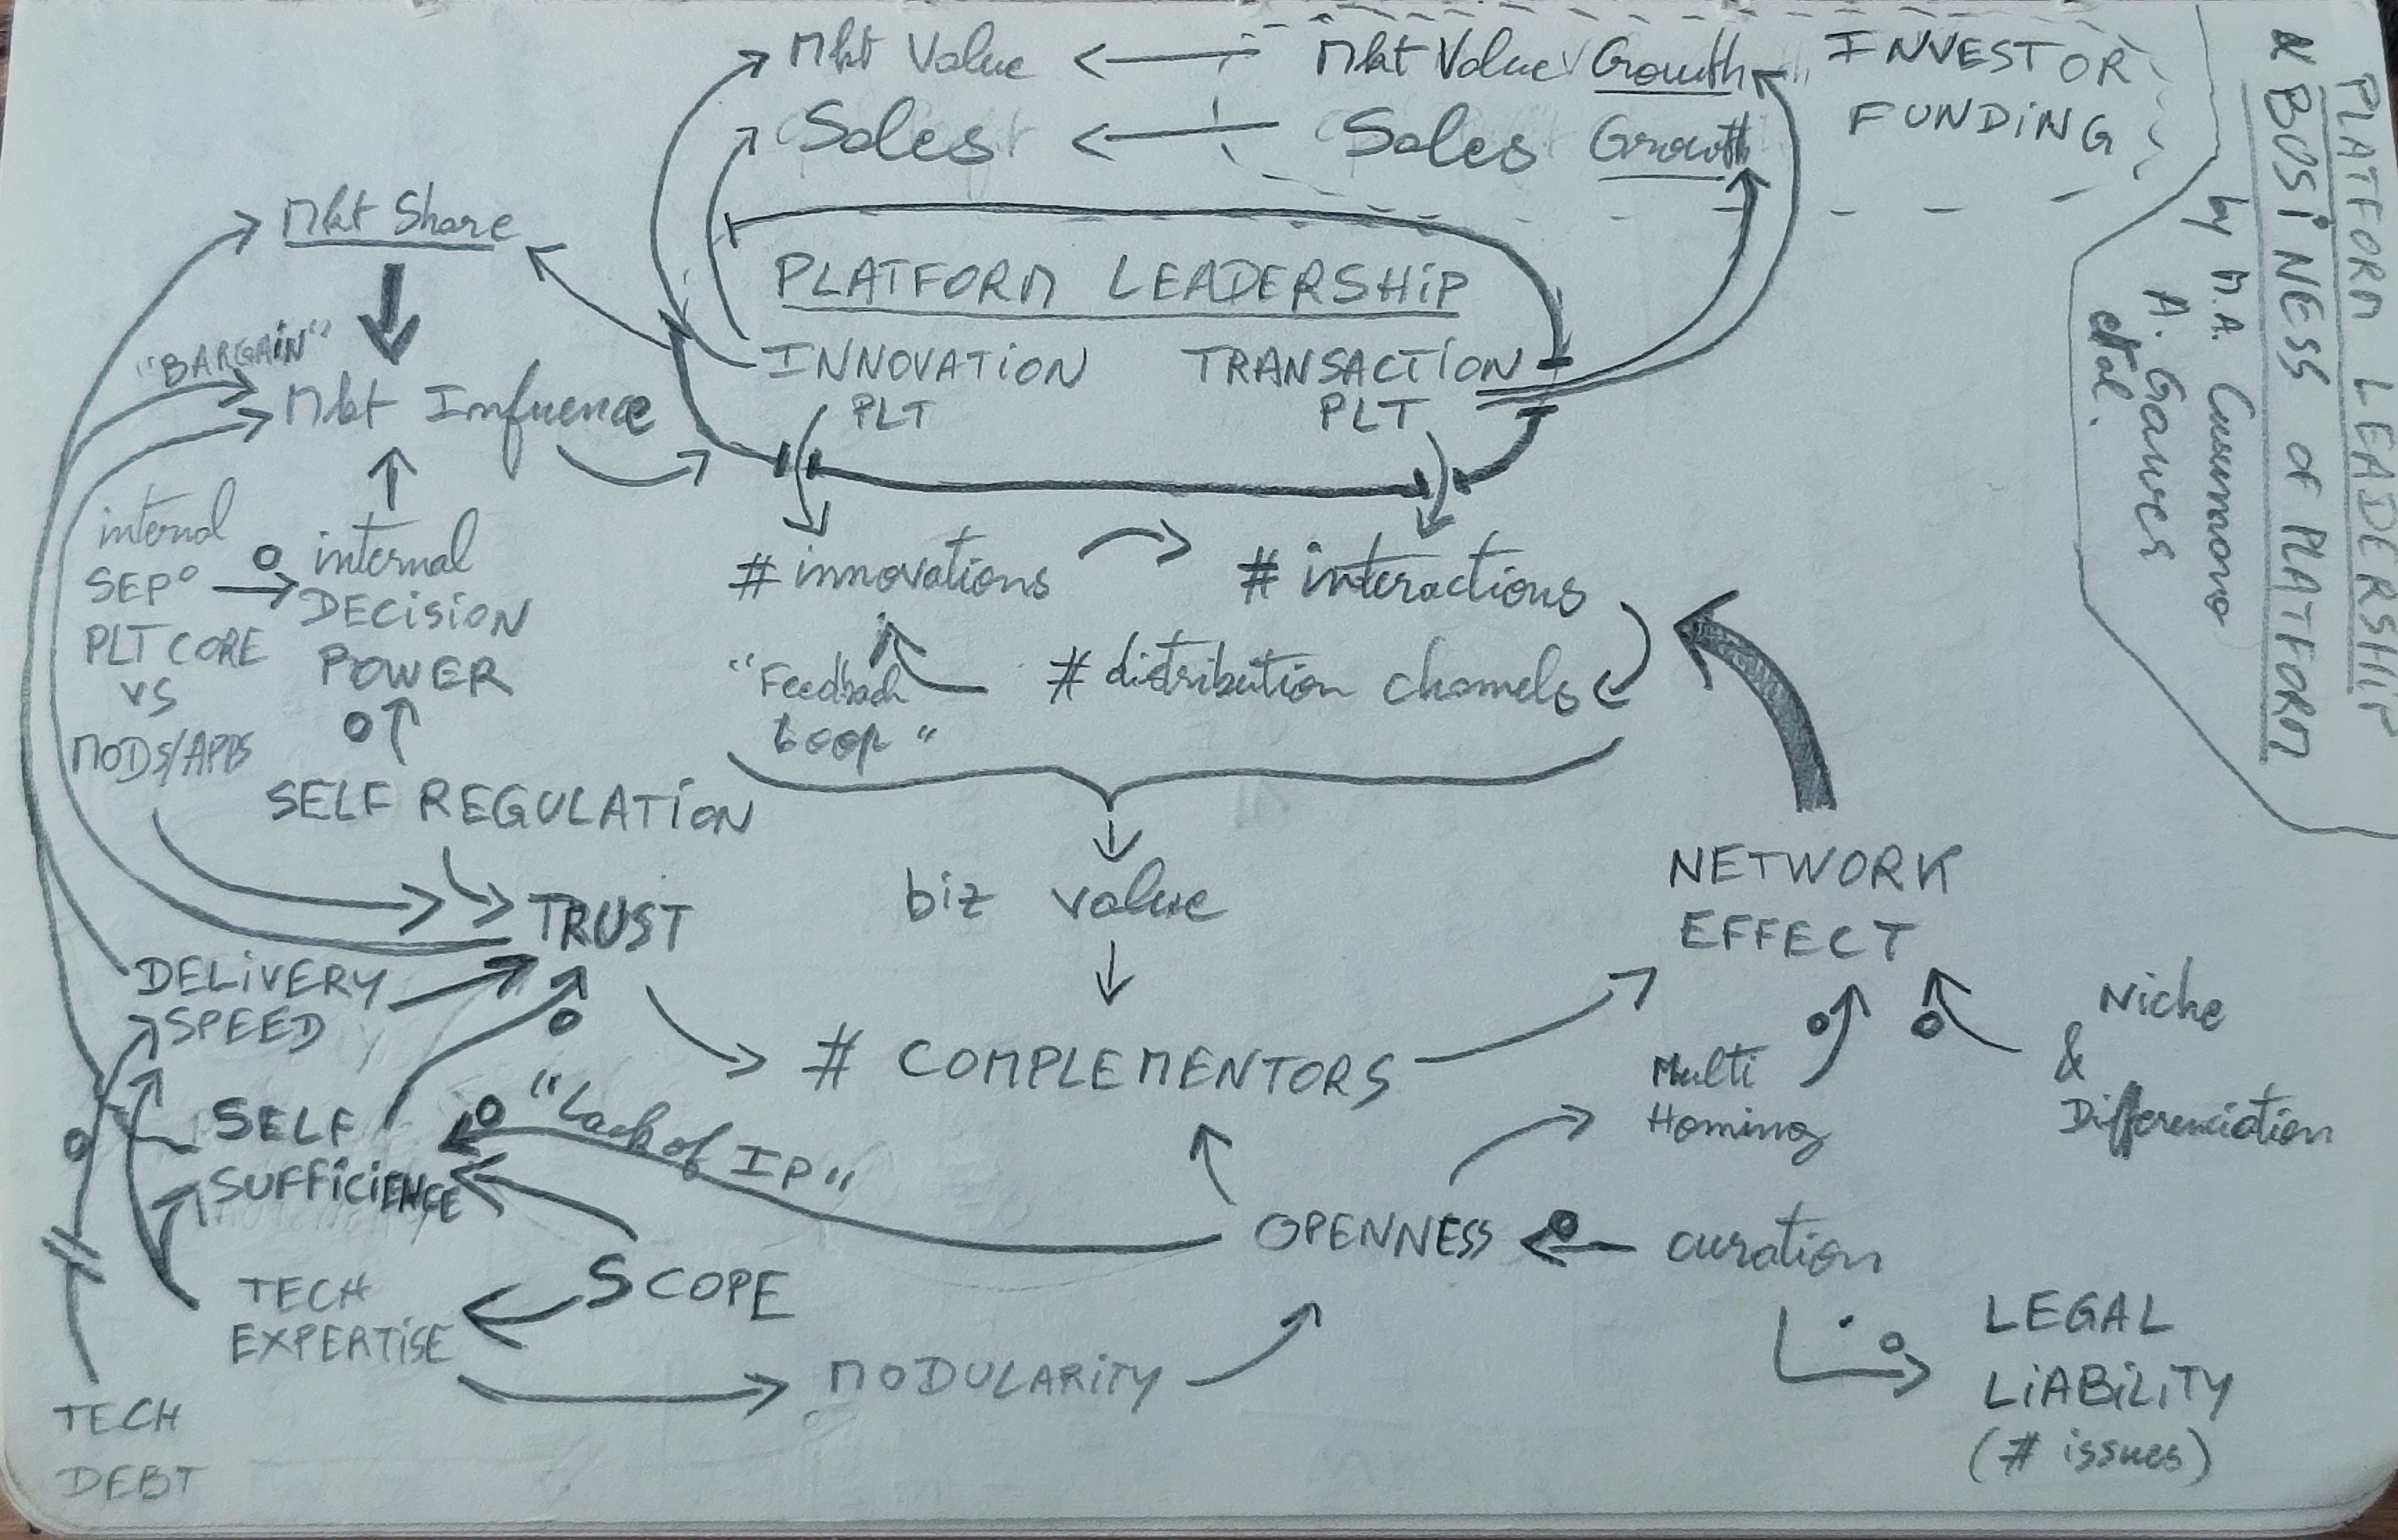 Mkt Value
Mkt Value Growth
INVESTOR
FUNDING
Sales
Sales Growth
Mkt Share
"BARGAIN"
Mkt Infuence
PLATFORM LEADERSHIP
INNOVATION
PLT
TRANSACTION
PLT
internal
SEP°
PLT CORE
VS
MODS/APPS
internal
DECISION
POWER
SELF REGULATION
# innovations
# interactions
# distribution channels
"Feedback
Loop"
biz value
TRUST
DELIVERY
SPEED
# COMPLEMENTORS
NETWORK
EFFECT
Multi
Homing
Niche
&
Differenciation
SELF
SUFFiCiENCE
"Lack of IP"
SCOPE
TECH
EXPERTISE
MODULARITY
OPENNESS
curation
LEGAL
LiABiLiTY
(# issues)
TECH
DEBT
PLATFORM LEADERSHIP
& BUSINESS of PLATFORM
by M.A. Cusumano
A. Gawer
et al.